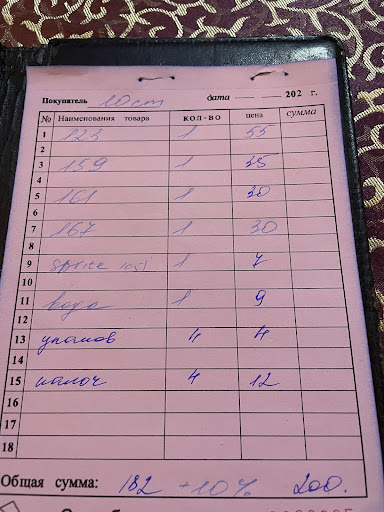 Покупатель 10 ст дата 202 г.
№ Наименования товара КОЛ-ВО цена сумма
1 123 1 55
2
3 159 1 35
4
5 161 1 30
6
7 167 1 30
8
9 sprice 1 7
10
11 вода 1 9
12
13 упаков 4 4
14
15 палоч 4 12
16
17
18
Общая сумма: 182 +10% 200.